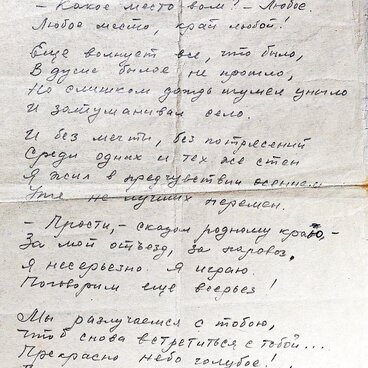 - Какое место вам? - Любое.
Любое место, край любой!
Еще волнует все, что было,
В душе былое не прошло,
Но слишком дождь шумел уныло
И затуманивал село.
И без мечты, без потрясений
Среди одних и тех же стен
Я жил в предчувствии осеннем
Уже не лучших перемен.
- Прости, - сказал родному краю, -
За мой отъезд, за паровоз,
Я несерьезно. Я играю.
Поговорим еще всерьез!
Мы разлучаемся с тобою,
Чтоб снова встретиться с тобой...
Прекрасно небо голубое!